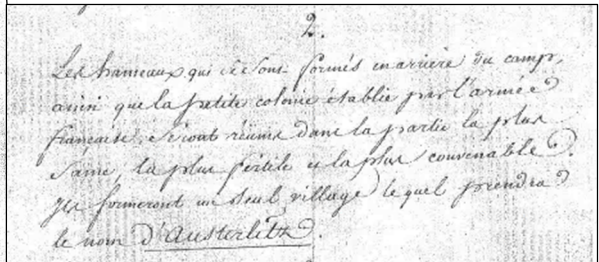 2.
Les hameaux qui se sont formés en arrière du camp,
ainsi que la petite colonie établie par l'armée
française, seront réunis dans la partie la plus
saine, la plus fertile et la plus convenable.
Ils formeront un seul village lequel prendra
le nom d'Austerlitz.